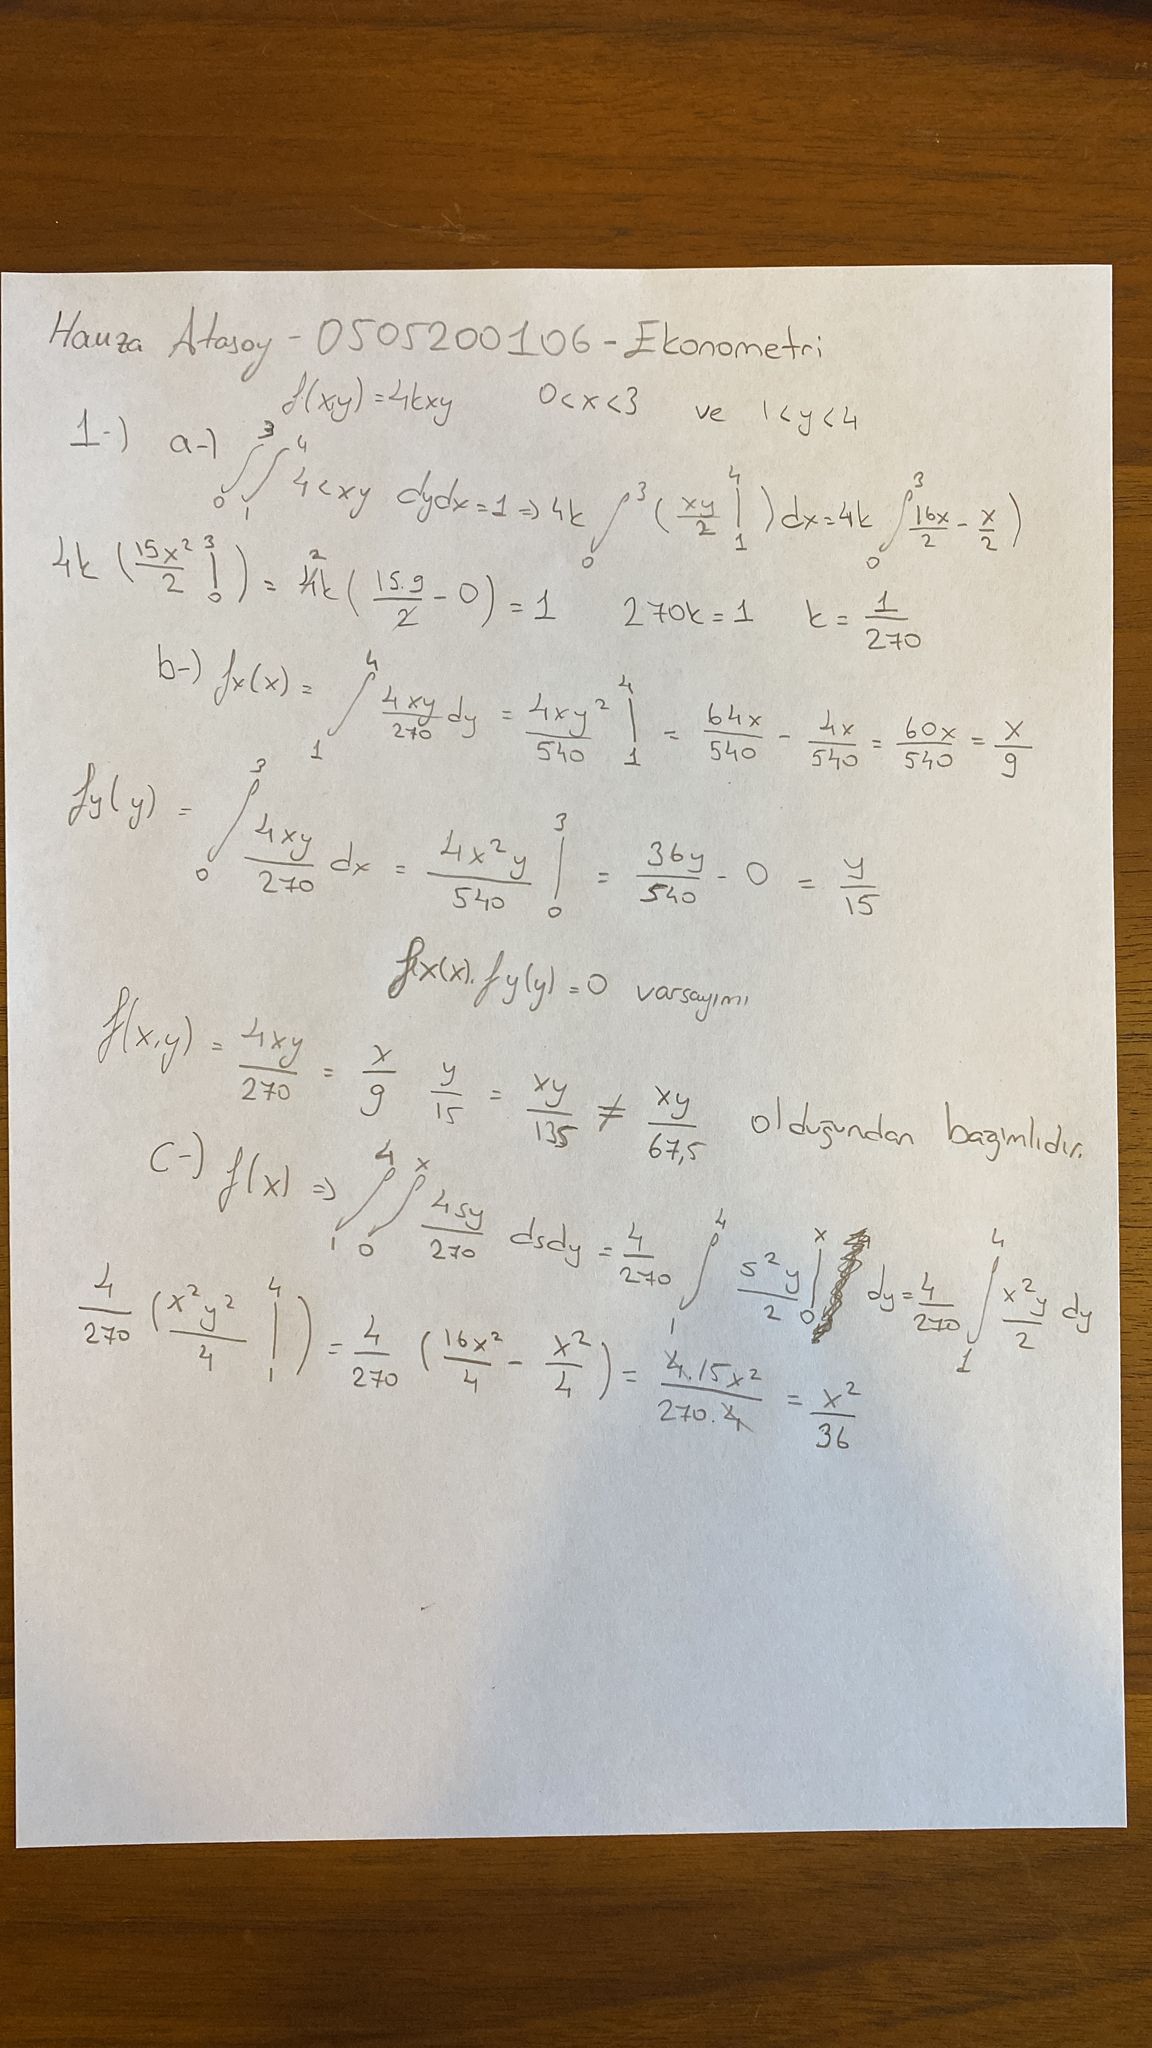 Hamza Atasoy - 0505200106 - Ekonometri
f(xy) = 4kxy 0<x<3 ve 1<y<4
1-) a-) ∫₀³ ∫₁⁴ 4kxy dydx = 1 => 4k ∫₀³ ( xy/2 |₁⁴ ) dx = 4k ∫₀³ 16x/2 - x/2 )
4k ( 15x²/2 |₀³ ) = 4k 2 ( 15.9/2 - 0 ) = 1 270k = 1 k = 1/270
b-) fx(x) = ∫₁⁴ 4xy/270 dy = 4xy²/540 |₁⁴ = 64x/540 - 4x/540 = 60x/540 = x/9
fy(y) = ∫₀³ 4xy/270 dx = 4x²y/540 |₀³ = 36y/540 - 0 = y/15
fx(x). fy(y) = 0 varsayımı
f(x,y) = 4xy/270 = x/9 y/15 = xy/135 ≠ xy/67,5 olduğundan bağımlıdır.
c-) f(x) => ∫₁⁴ ∫₀ˣ 4sy/270 dsdy = 4/270 ∫₁⁴ s²y/2 |₀ˣ dy = 4/270 ∫₁⁴ x²y/2 dy
4/270 ( x²y²/4 |₁⁴ ) = 4/270 ( 16x²/4 - x²/4 ) = 4.15x²/270.4 = x²/36